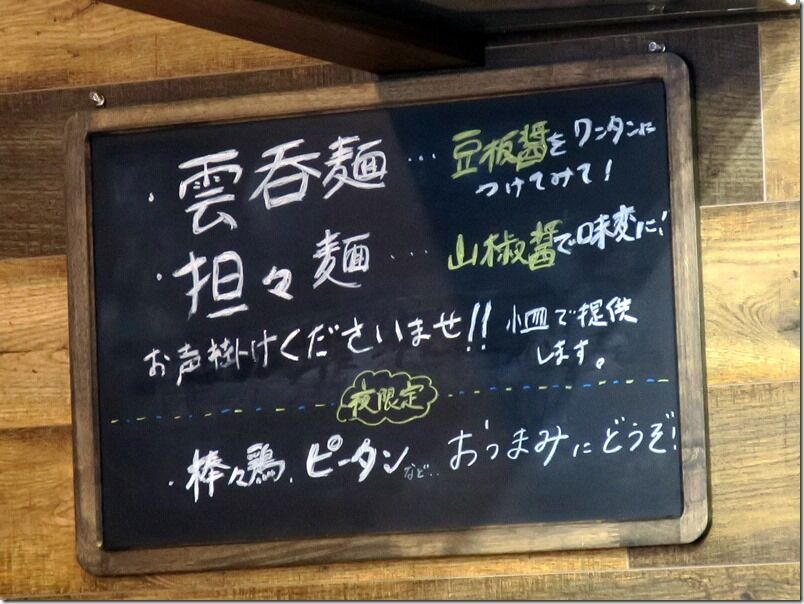 ・雲呑麺…豆板醤をワンタンに
つけてみて!
・担々麺…山椒醤で味変に!
お声掛けくださいませ!! 小皿で提供
します。
夜限定
・棒々鶏、ピータンなど… おつまみにどうぞ!